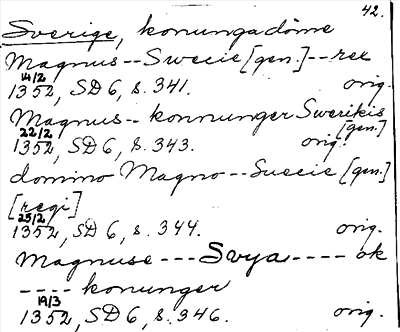 42.
Sverige, konungadöme
Magnus--Swecie [gen.]--rex
14/2
1352, SD 6, s. 341. orig.
Magnus--konnunger Swerikis
[gen.]
22/2
1352, SD 6, s. 343. orig.
domino Magno--Suecie [gen.]
[regi]
25/2
1352, SD 6, s. 344. orig.
Magnuse---Svya----ok
----konunger
19/3
1352, SD 6, s. 346. orig.